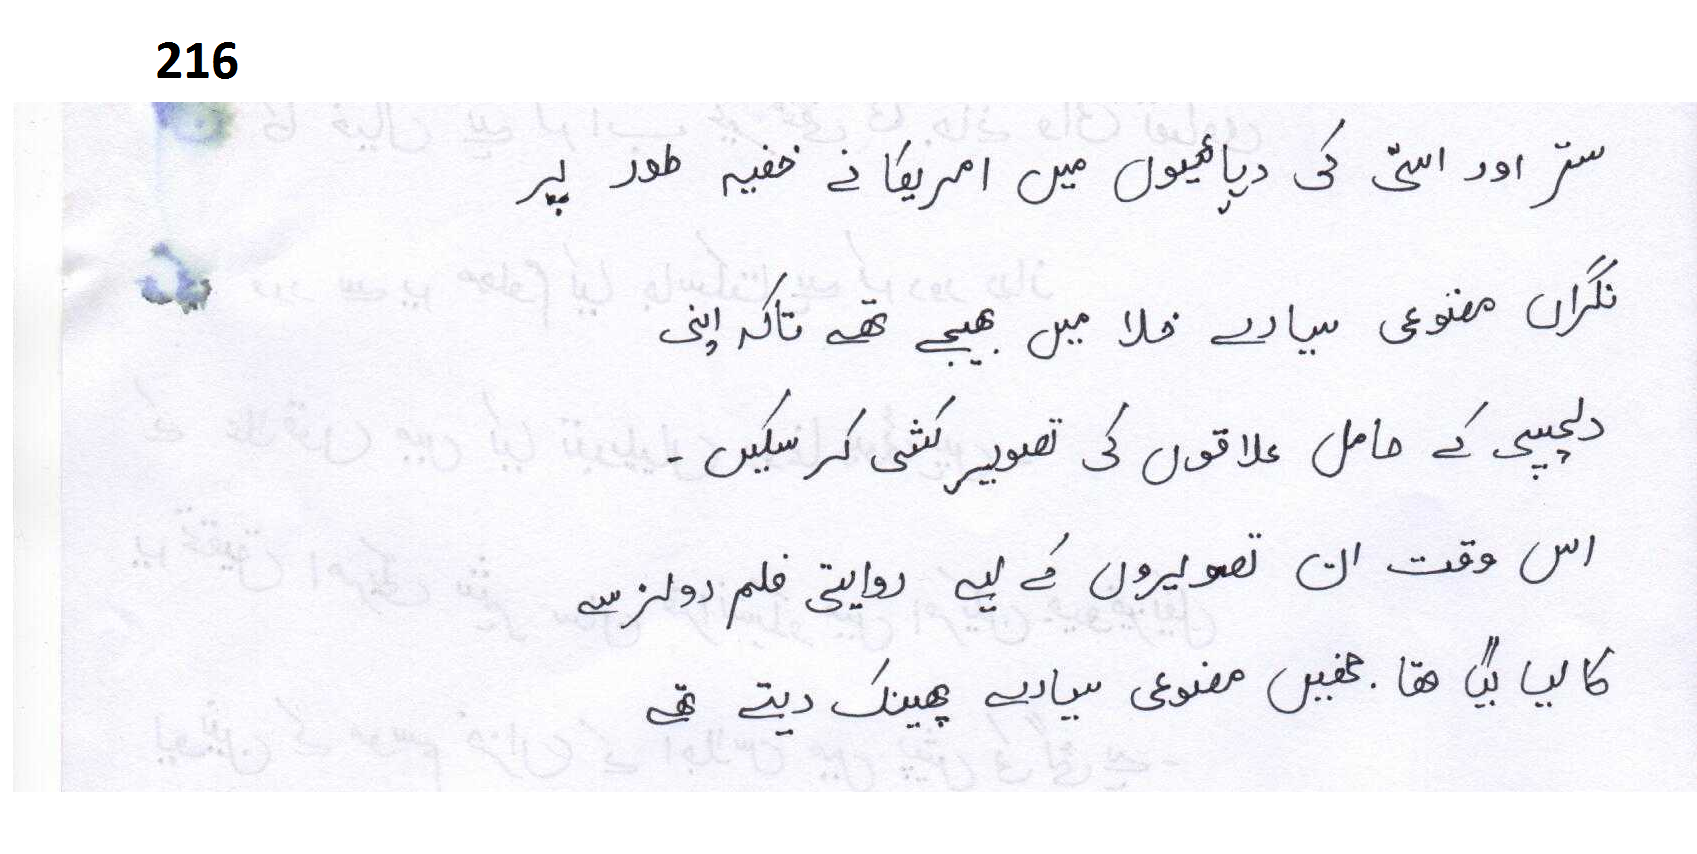 216
ستر اور اسّی کی دہائیوں میں امریکا نے خفیہ طور پر
نگراں مصنوعی سیارے خلا میں بھیجے تھے تاکہ اپنی
دلچسپی کے حامل علاقوں کی تصویر کشی کر سکیں ۔
اس وقت ان تصویروں کے لیے روایتی فلم رولز سے
کا لیا گیا تھا۔ جنھیں مصنوعی سیارے پھینک دیتے تھے